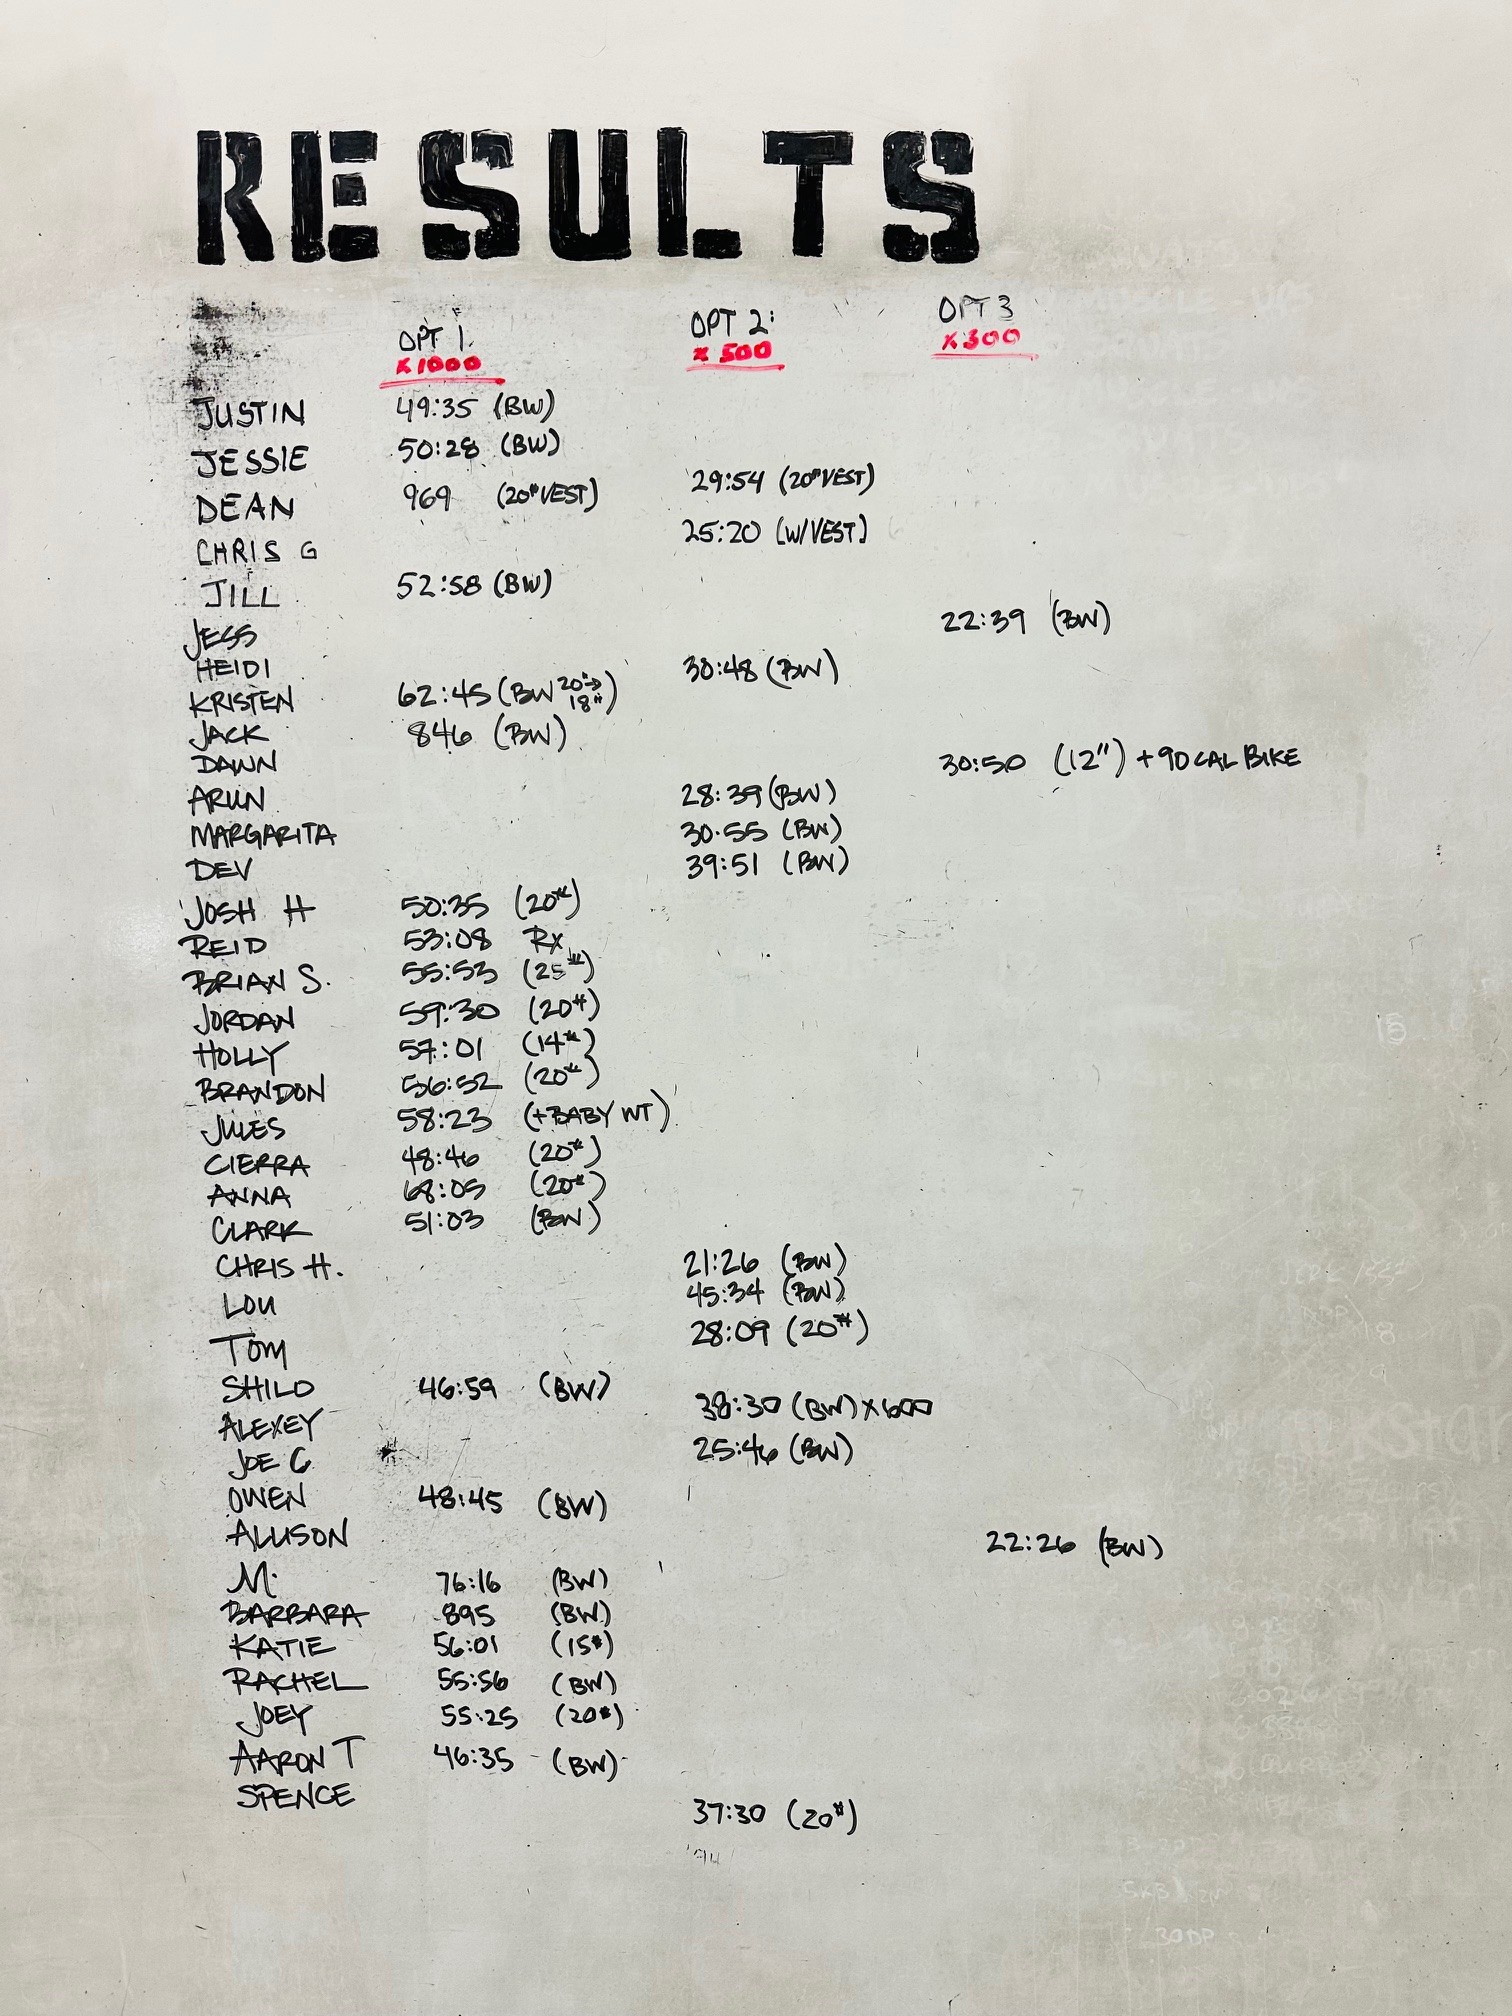 RESULTS
OPT 1. OPT 2: OPT 3
x1000 x 500 x300
JUSTIN 49:35 (BW)
JESSIE 50:28 (BW)
DEAN 969 (20# VEST) 29:54 (20# VEST)
CHRIS G 25:20 (W/VEST)
JILL 52:58 (BW)
JESS 22:39 (BW)
HEIDI 30:48 (BW)
KRISTEN 62:45 (BW 20"→ 18")
JACK 846 (BW)
DAWN 30:50 (12") + 90 CAL BIKE
ARUN 28:39 (BW)
MARGARITA 30:55 (BW)
DEV 39:51 (BW)
JOSH H 50:35 (20#)
REID 53:08 Rx
BRIAN S. 55:53 (25#)
JORDAN 59:30 (20#)
HOLLY 57:01 (14#)
BRANDON 56:52 (20#)
JULES 58:23 (+BABY WT)
CIERRA 48:46 (20#)
ANNA 68:05 (20#)
CLARK 51:03 (BW)
CHRIS H. 21:26 (BW)
LOU 45:34 (BW)
TOM 28:09 (20#)
SHILO 46:59 (BW)
ALEXEY 38:30 (BW) x600
JOE C 25:46 (BW)
OWEN 48:45 (BW)
ALLISON 22:26 (BW)
M. 76:16 (BW)
BARBARA 895 (BW)
KATIE 56:01 (15#)
RACHEL 55:56 (BW)
JOEY 55:25 (20#)
AARON T 46:35 (BW)
SPENCE 37:30 (20#)